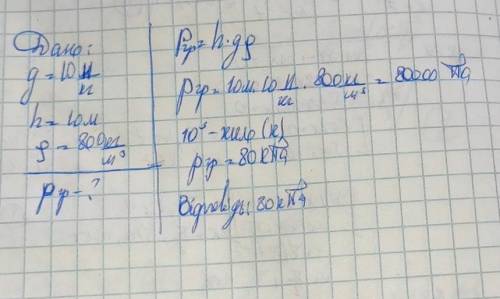 Дано:
g = 10 Н/кг
h = 10м
ρ = 800 кг/м³
Pгр - ?
Pгр = h·gρ
Pгр = 10м·10 Н/кг · 800 кг/м³ = 80000 Па
10³ - кило (к)
Pгр = 80кПа
Відповідь: 80кПа